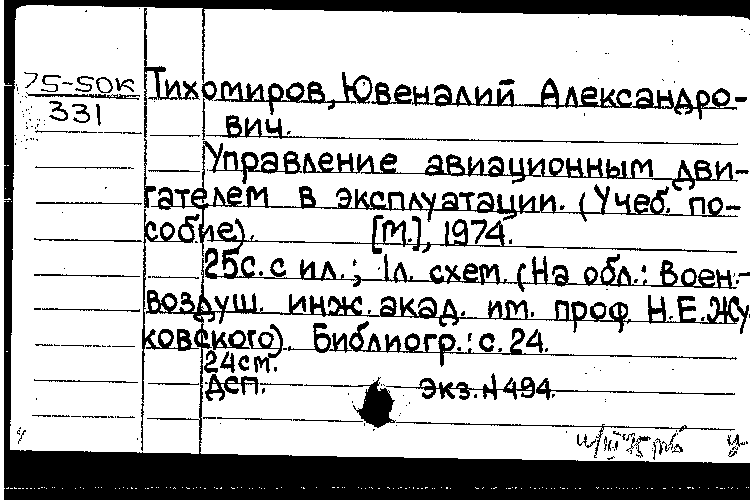 75-50к
331
Тихомиров, Ювеналий Александро-
вич.
Управление авиационным дви-
гателем в эксплуатации. (Учеб. по-
собие). [М.], 1974.
25с. с ил.; 1л. схем. (На обл.: Воен.-
воздуш. инж. акад. им. проф. Н.Е. Жу
ковского). Библиогр.: с. 24.
24см.
ДСП. Экз. № 494.